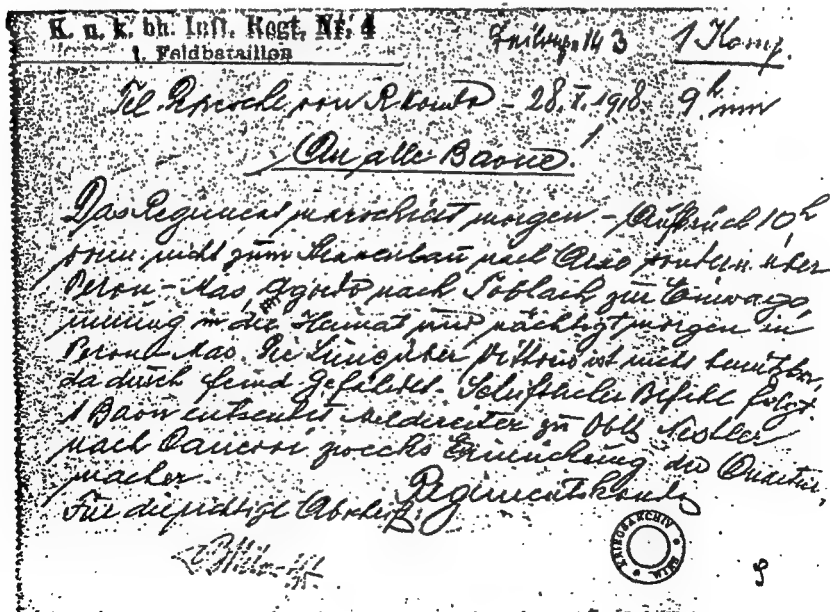 K. u. k. bh. Inft. Regt. Nr. 4
1. Feldbataillon
1 Komp.
Tel. Depesche von R Komdo - 28. X. 1918 9h nm
An alle Baone!
Das Regiment marschiert morgen - Aufbruch 10h
vorm nicht zum Strassenbau nach sondern über
Peron-Mas, Agordo nach Toblach zur Einwago,
nierung in die Heimat und nächtigt morgen in
Peron-Mas. Die Linie über Vittorio ist nicht benützbar,
da durch Feind gefährdet. Schriftlicher Befehl folgt.
1 Baon entsendet Meldereiter zu Oblt
nach zwecks der Quartier,
macher.
Regimentskomdo
Für die richtige Abschrift:
KRIEGSARCHIV WIEN
9